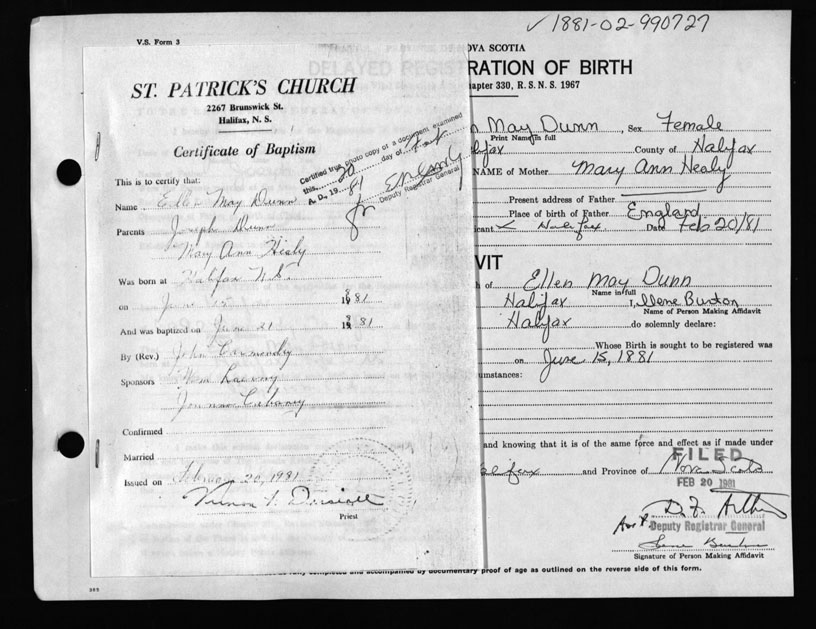 ✓ 1881-02-990727
V.S. Form 3
ST. PATRICK'S CHURCH
2267 Brunswick St.
Halifax, N. S.
Certificate of Baptism
Certified true photo copy of a document examined
this 20 day of
A. D., 19 81
Deputy Registrar General
This is to certify that:
Name Ellen May Dunn
Parents Joseph Dunn
Mary Ann Healy
Was born at Halifax N.S.
on June 15 1881
And was baptized on June 21 1881
By (Rev.) John
Sponsors
Confirmed
Married
Issued on February 20, 1981
Priest
OVA SCOTIA
RATION OF BIRTH
apter 330, R. S. N. S. 1967
n May Dunn, Sex Female
Print Name in full
lifax County of Halifax
NAME of Mother Mary Ann Healy
Present address of Father
Place of birth of Father England
icant Halifax Date Feb 20/81
VIT
h of Ellen May Dunn
Name in full
Halifax I, Ilene Buxton
Name of Person Making Affidavit
Halifax do solemnly declare:
Whose Birth is sought to be registered was
on June 15, 1881
cumstances:
and knowing that it is of the same force and effect as if made under
alifax and Province of Nova Scotia
FILED
FEB 20 1981
Deputy Registrar General
Signature of Person Making Affidavit
fully completed and accompanied by documentary proof of age as outlined on the reverse side of this form.